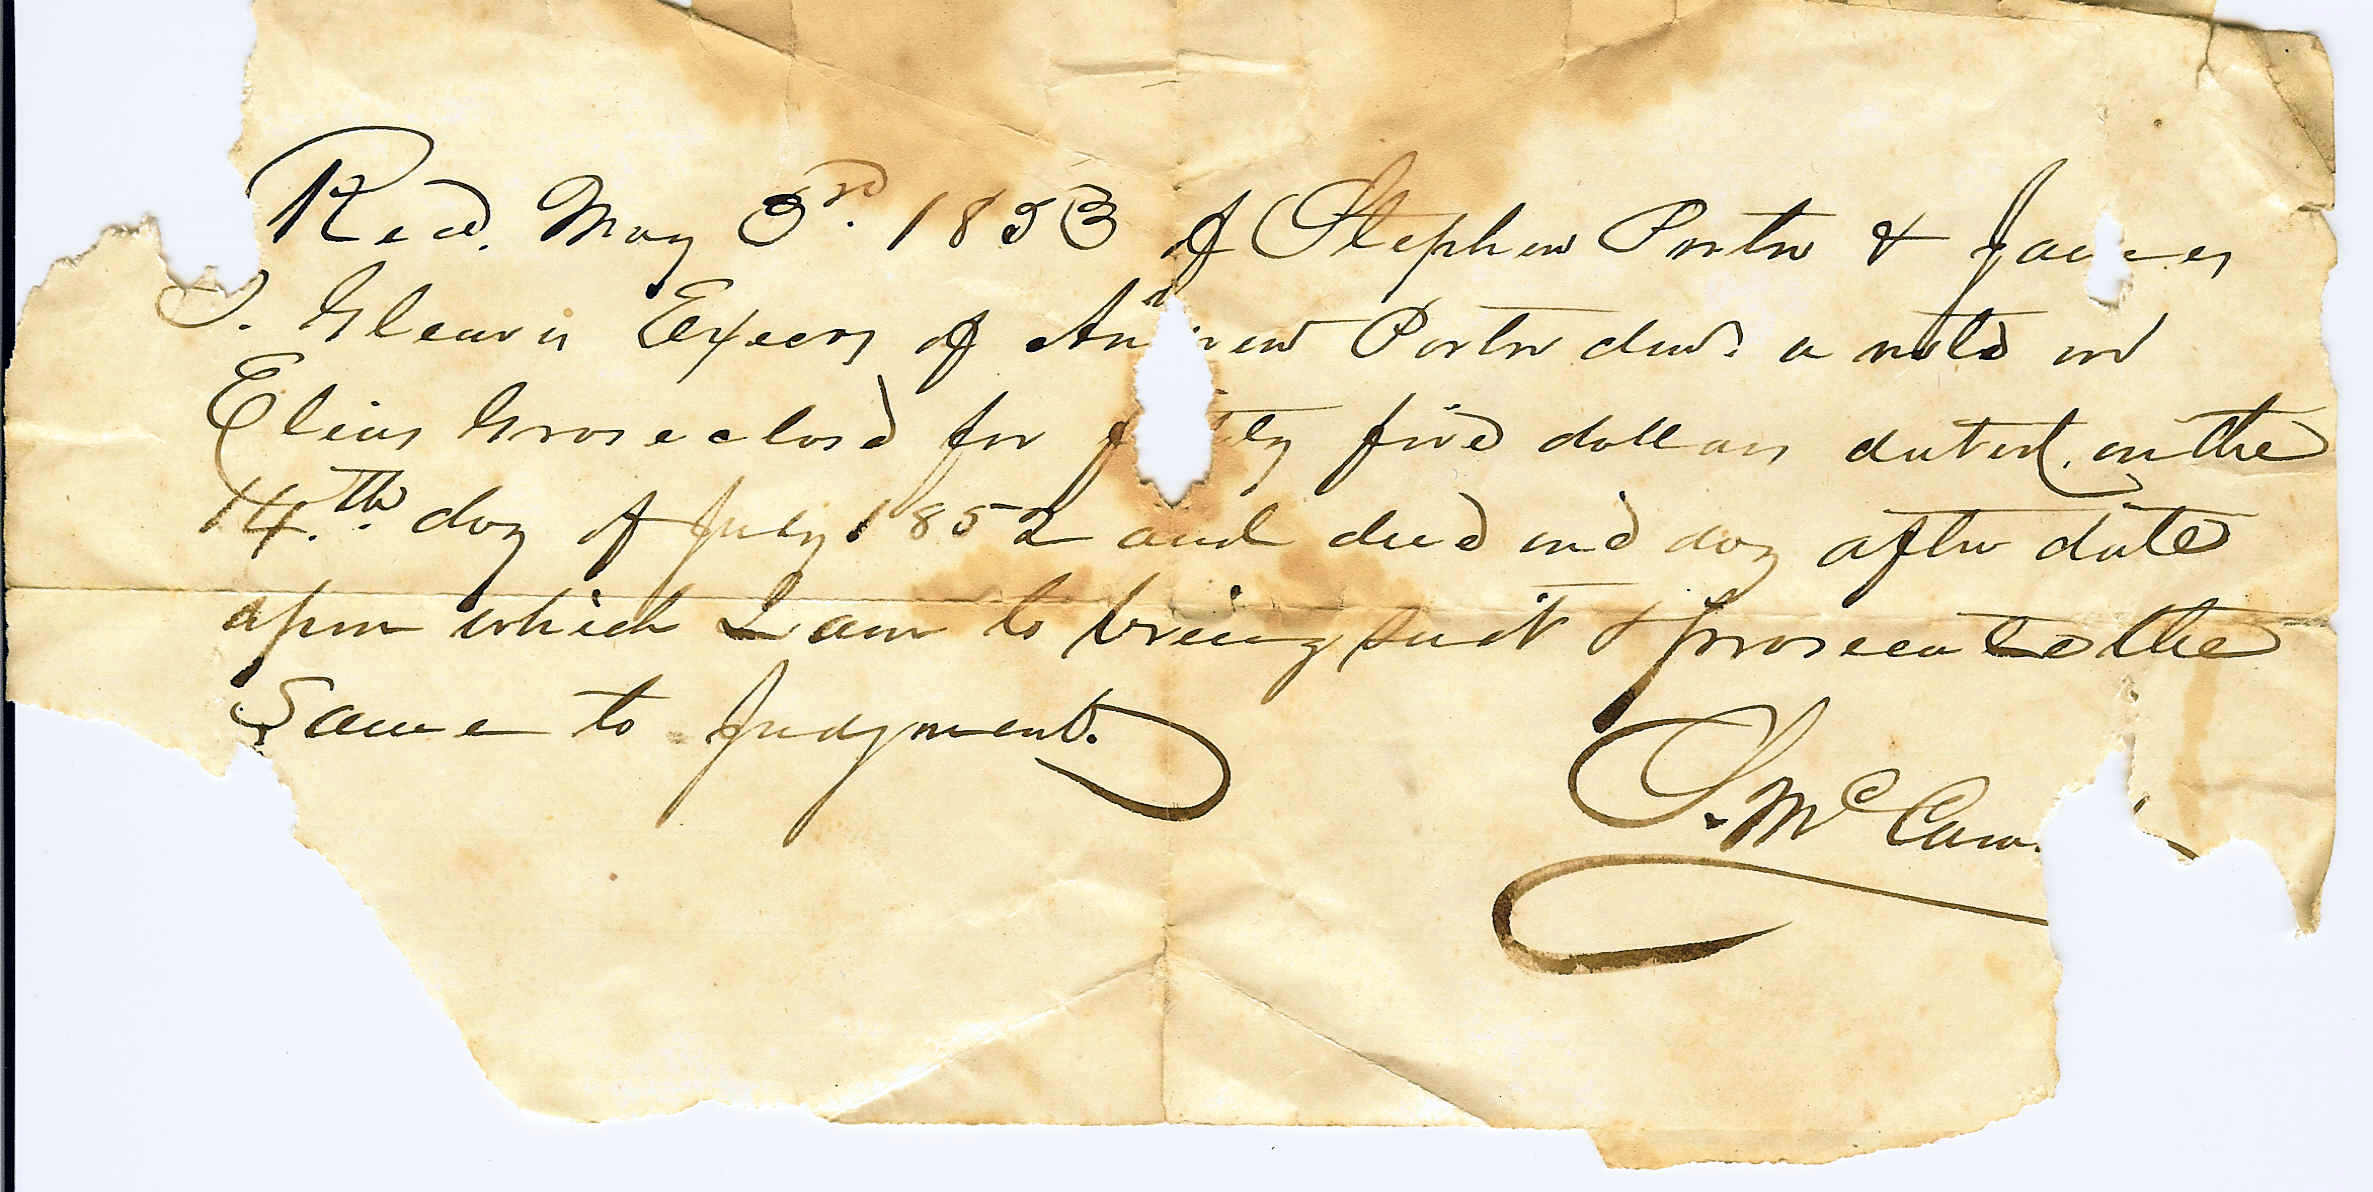 Recd. May 3rd. 1853 of Stephen Porter & James
S. Gleaves Execrs of An rew Porter decd. a note on
Elias Groseclose for f ty five dollars dated on the
14.th day of July 1852 and due one day after date
upon which I am to bring suit & prosecute the
Same to Judgment.
S. McCam